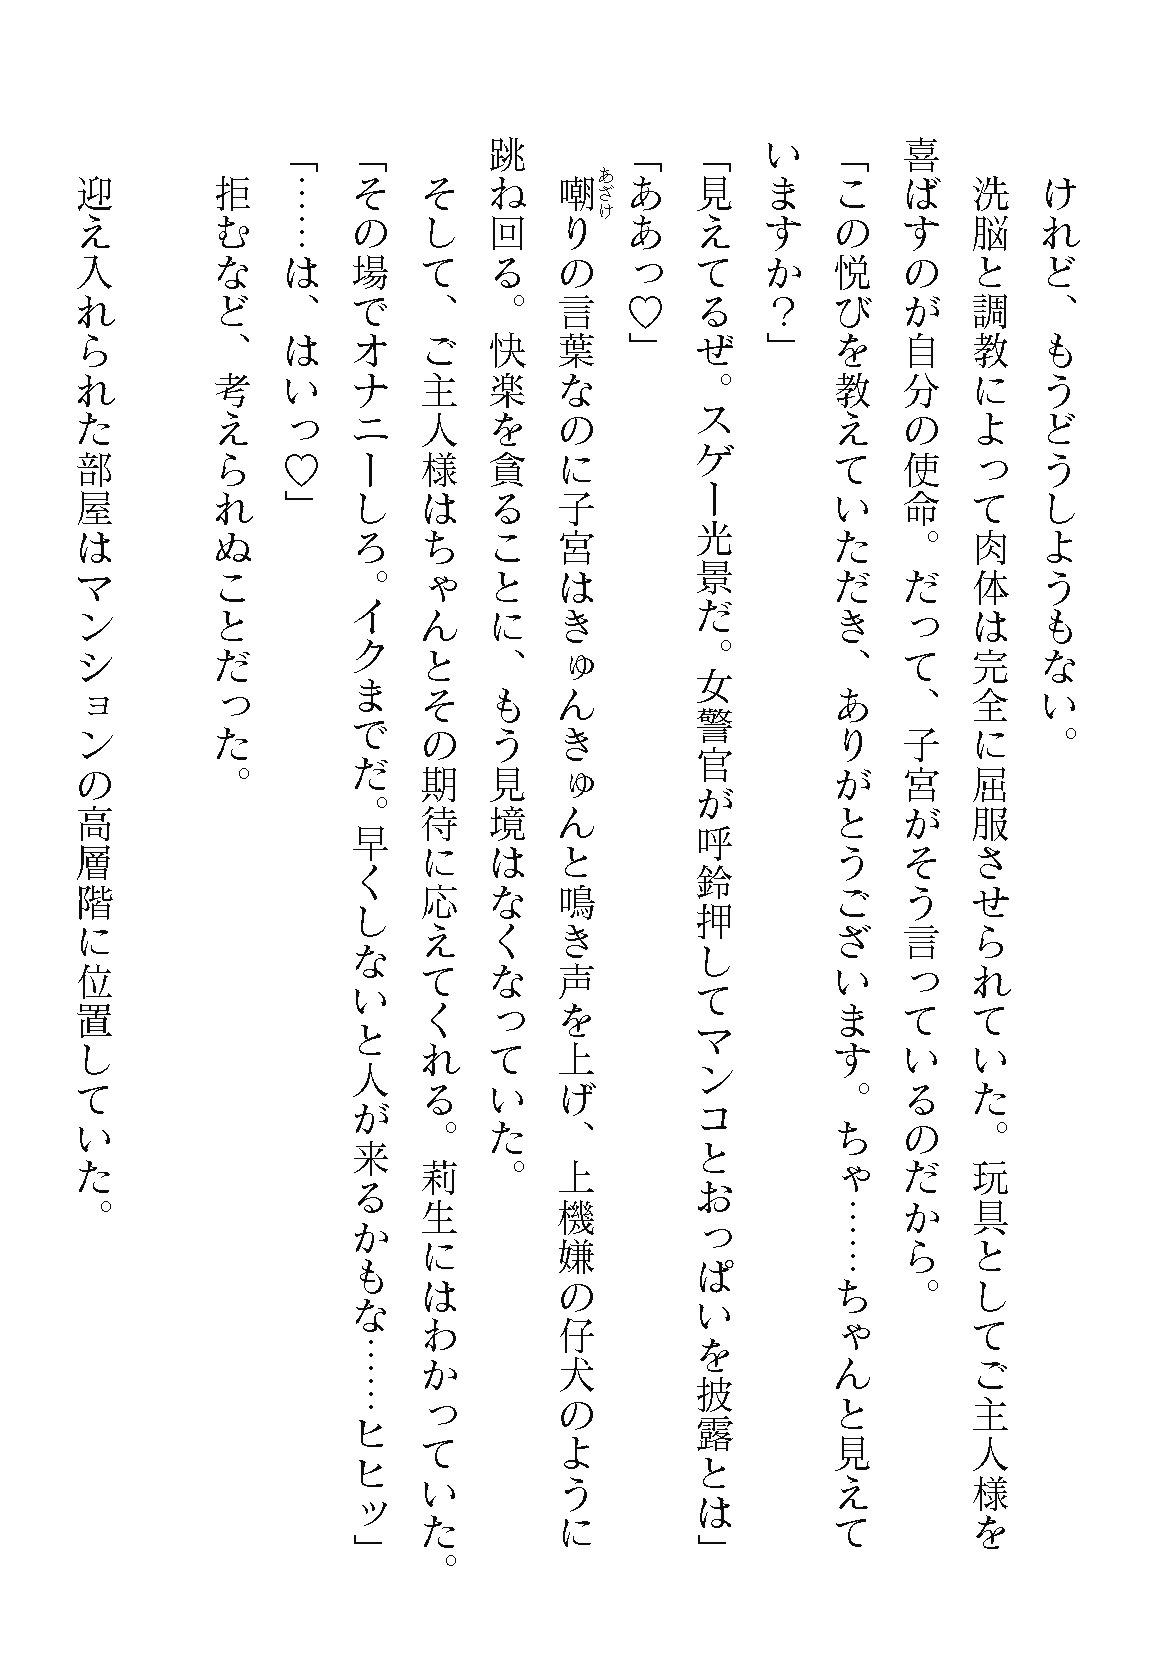 けれど、もうどうしようもない。
洗脳と調教によって肉体は完全に屈服させられていた。玩具としてご主人様を
喜ばすのが自分の使命。だって、子宮がそう言っているのだから。
「この悦びを教えていただき、ありがとうございます。ちゃ……ちゃんと見えて
いますか？」
「見えてるぜ。スゲー光景だ。女警官が呼鈴押してマンコとおっぱいを披露とは」
「ああっ♡」
嘲りの言葉なのに子宮はきゅんきゅんと鳴き声を上げ、上機嫌の仔犬のように
あざけ
跳ね回る。快楽を貪ることに、もう見境はなくなっていた。
そして、ご主人様はちゃんとその期待に応えてくれる。莉生にはわかっていた。
「その場でオナニーしろ。イクまでだ。早くしないと人が来るかもな……ヒヒッ」
「……は、はいっ♡」
拒むなど、考えられぬことだった。
迎え入れられた部屋はマンションの高層階に位置していた。